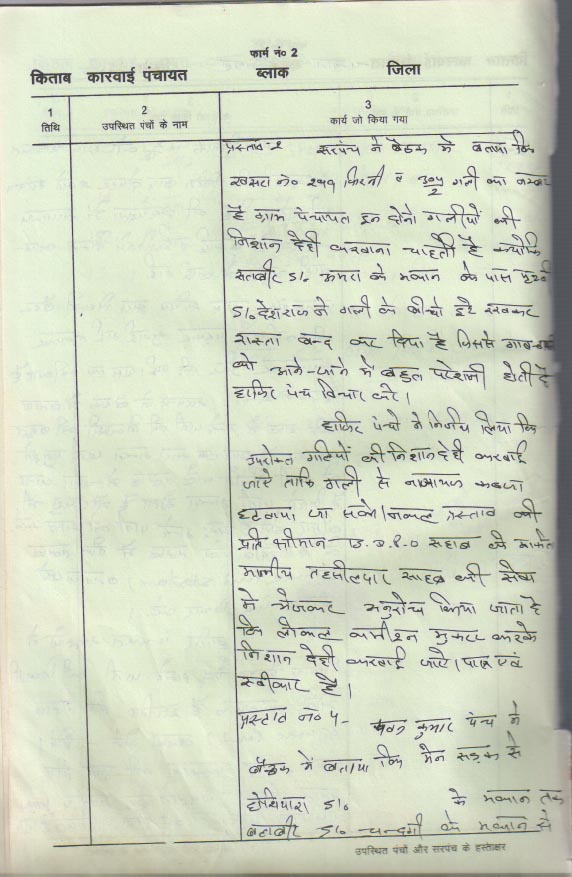 फार्म नं० 2
किताब कारवाई पंचायत ब्लाक जिला
1 2 3
तिथि उपस्थित पंचों के नाम कार्य जो किया गया
प्रस्ताव-२ सरपंच ने बैठक में बताया कि
खसरा न० २९९ फिरनी व गली का नम्बर
है ग्राम पंचायत इन दोनो गलीयों की
निशान देही करवाना चाहती है क्योंकि
सतबीर S/o के मकान के पास
S/o देशराज ने गली के बीचो ईंट रखकर
रास्ता बन्द कर दिया है जिससे
को आने-जाने में बहुत परेशानी होती है
हाजिर पंच विचार करे।
हाजिर पंचो ने निर्णय लिया कि
उपरोक्त गलियों की निशान देही करवाई
जाऐ ताकि गली से नाजायज कब्जा
हटवाया जा सके। नकल प्रस्ताव की
प्रति श्रीमान साहब के मार्फत
माननीय तहसीलदार साहब की सेवा
में भेजकर अनुरोध किया जाता है
कि लोकल कमीशन मुकरर करके
निशान देही करवाई जाऐ। पास एवं
स्वीकार है।
प्रस्ताव नं० ५- कुमार पंच ने
बैठक में बताया कि मेन सड़क से
होशियारा S/o के मकान तक
S/o चन्दगी के मकान से
उपस्थित पंचों और सरपंच के हस्ताक्षर